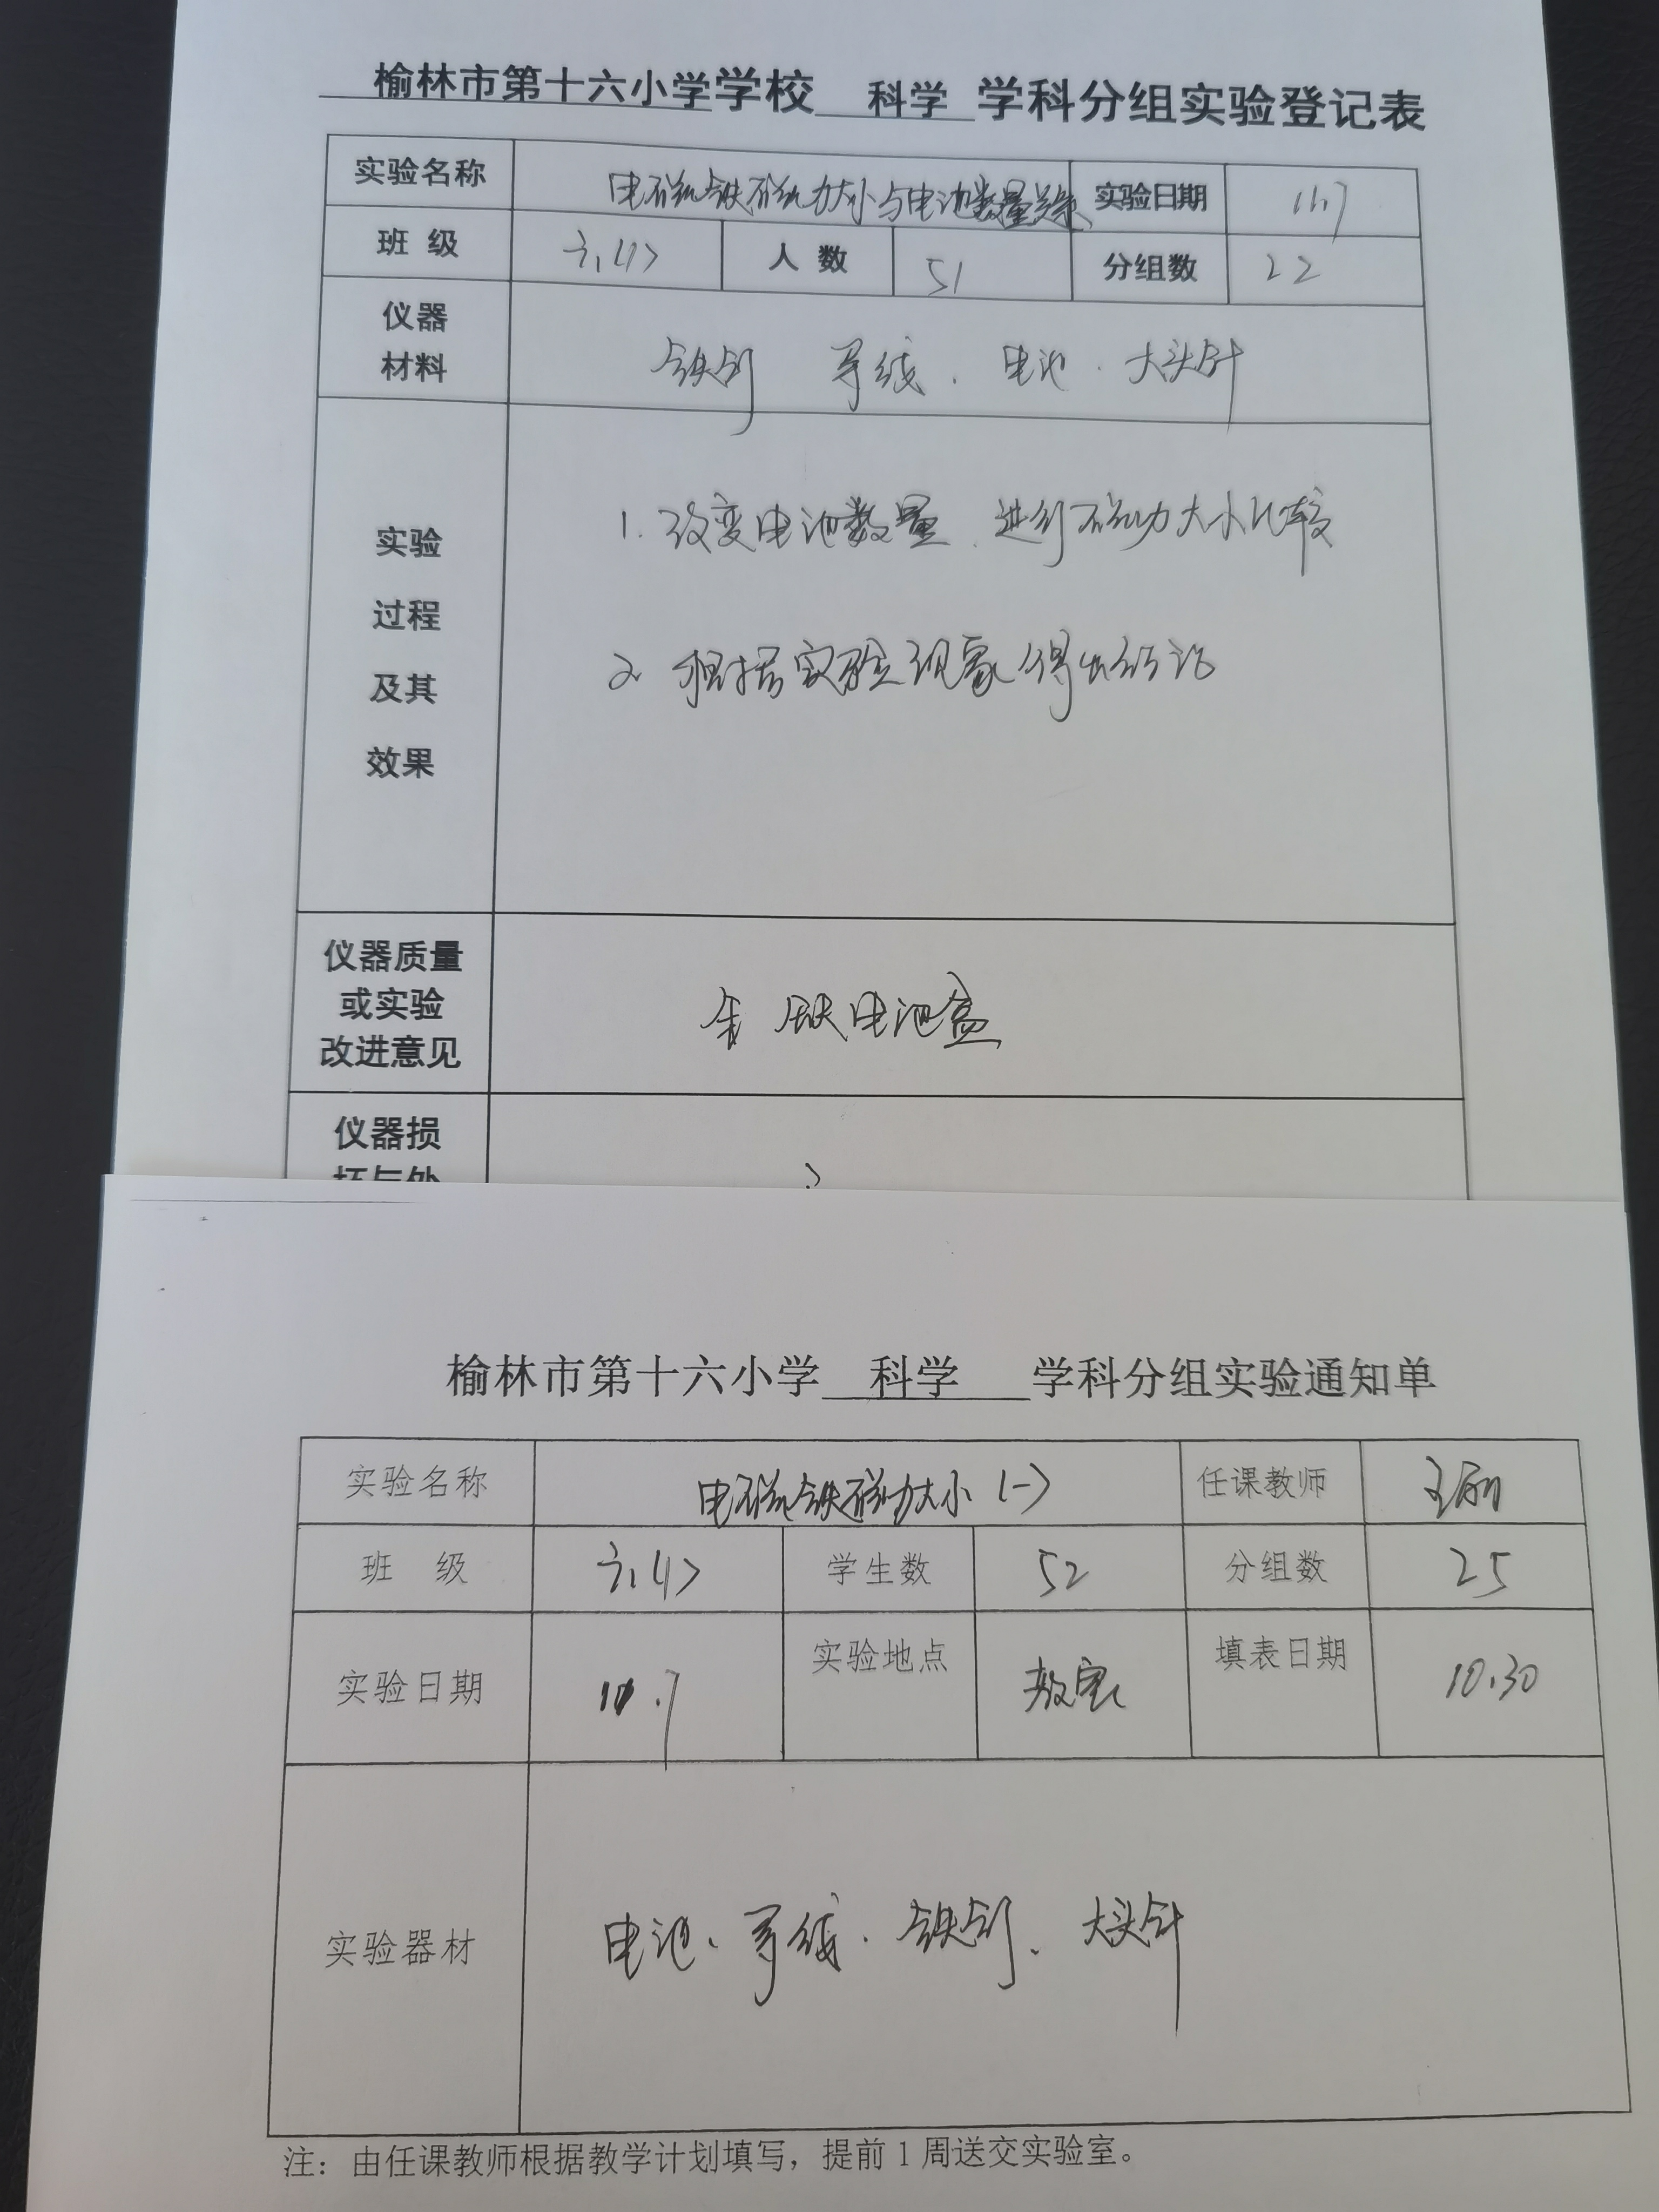 榆林市第十六小学学校 科学 学科分组实验登记表
实验名称 电磁铁磁力大小与电池数量关系 实验日期 11.7
班 级 六(1) 人 数 51 分组数 22
仪器
材料
铁钉 导线. 电池. 大头针
实验
过程
及其
效果
1. 改变电池数量. 进行磁力大小比较
2. 根据实验现象得出结论
仪器质量
或实验
改进意见
缺电池盒
仪器损
坏与处
榆林市第十六小学 科学 学科分组实验通知单
实验名称 电磁铁磁力大小(一) 任课教师
班 级 六(1) 学生数 52 分组数 25
实验日期 11.7 实验地点 教室 填表日期 10.30
实验器材 电池、导线. 铁钉、大头针
注：由任课教师根据教学计划填写，提前1周送交实验室。